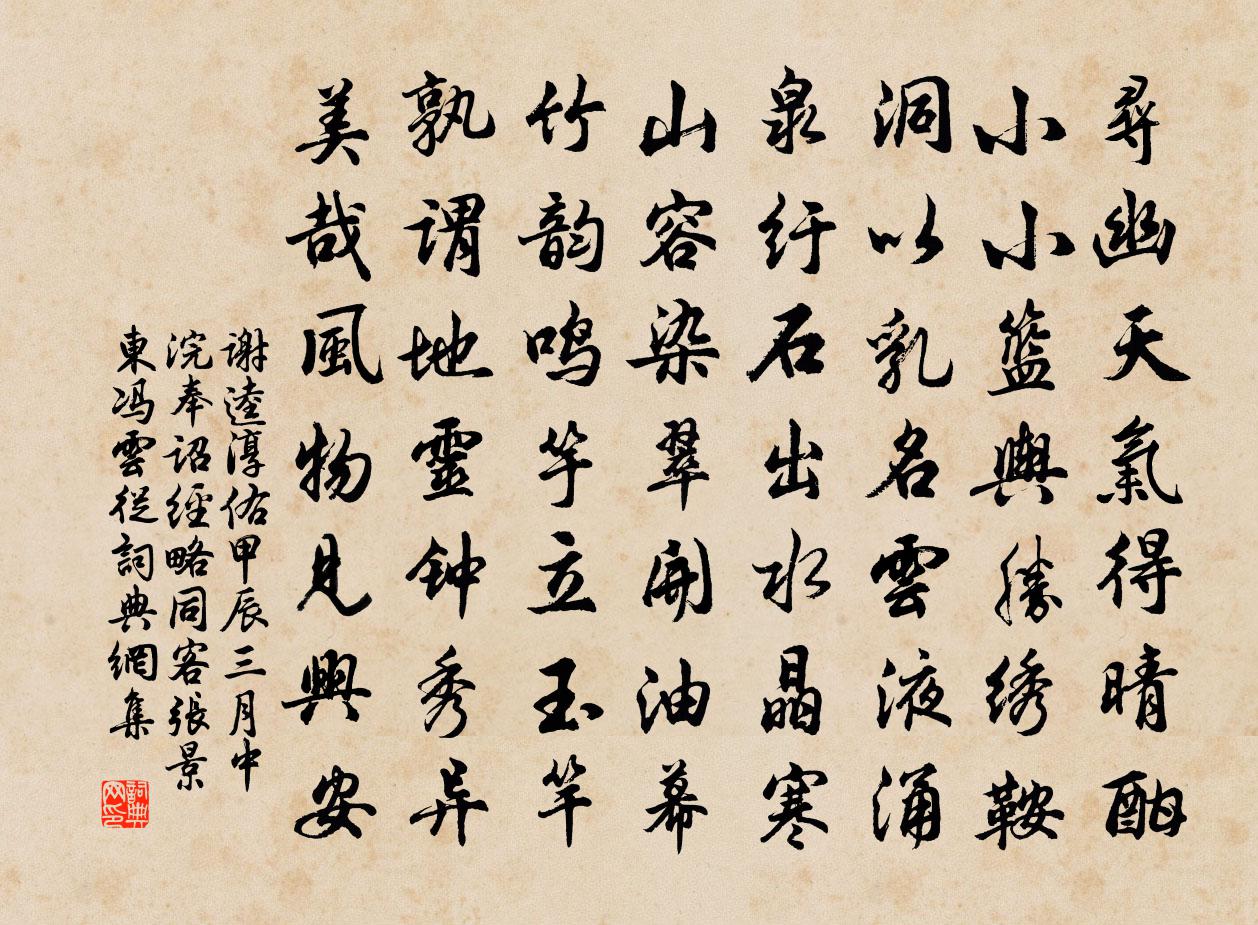 尋幽天氣得晴酣
小小籃輿勝绣鞍
洞以乳名雲液涌
泉纡石出水晶寒
山容染翠開油幕
竹韵鸣竽立玉竿
孰謂地靈钟秀异
美哉風物見興安
謝逵淳佑甲辰三月中
浣奉詔經略同客張景
東冯雲從詞典網集
詞典
网印